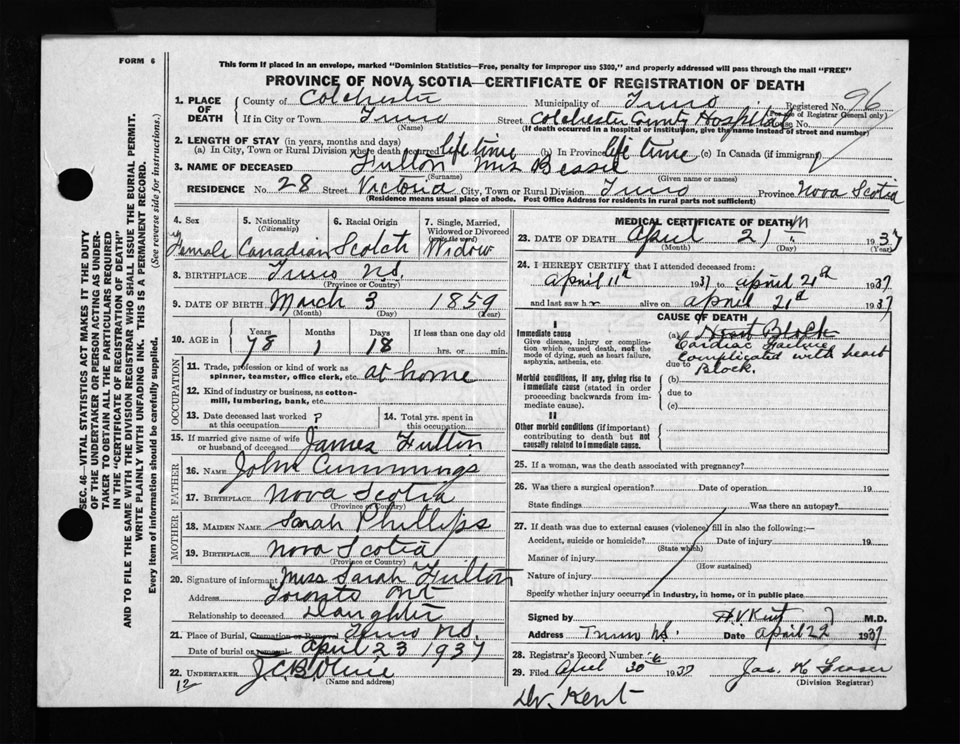 FORM 6
This form if placed in an envelope, marked "Dominion Statistics—Free, penalty for improper use $300," and properly addressed will pass through the mail "FREE"
PROVINCE OF NOVA SCOTIA—CERTIFICATE OF REGISTRATION OF DEATH
1. PLACE OF DEATH { County of Colchester Municipality of Truro Registered No. 96
(For use of Registrar General only)
If in City or Town Truro Street Colchester County Hospital House No.
(Name) (If death occurred in a hospital or institution, give the name instead of street and number)
2. LENGTH OF STAY (in years, months and days)
(a) In City, Town or Rural Division where death occurred life time (b) In Province life time (c) In Canada (if immigrant)
3. NAME OF DECEASED Fulton Mrs Bessie
(Surname) (Given name or names)
RESIDENCE No. 28 Street Victoria City, Town or Rural Division Truro Province Nova Scotia
(Residence means usual place of abode. Post Office Address for residents in rural parts not sufficient)
4. Sex Female
5. Nationality (Citizenship) Canadian
6. Racial Origin Scotch
7. Single, Married, Widowed or Divorced (write the word) Widow
8. BIRTHPLACE Truro N.S.
(Province or Country)
9. DATE OF BIRTH March 3 1859
(Month) (Day) (Year)
10. AGE in Years 78 Months 1 Days 18 If less than one day old hrs. or min.
OCCUPATION
11. Trade, profession or kind of work as spinner, teamster, office clerk, etc. at home
12. Kind of industry or business, as cotton-mill, lumbering, bank, etc.
13. Date deceased last worked at this occupation ?
14. Total yrs. spent in this occupation
15. If married give name of wife or husband of deceased James Fulton
FATHER
16. NAME John Cummings
17. BIRTHPLACE Nova Scotia
(Province or Country)
MOTHER
18. MAIDEN NAME Sarah Phillips
19. BIRTHPLACE Nova Scotia
(Province or Country)
20. Signature of informant Miss Sarah Fulton
Address Toronto Ont
Relationship to deceased Daughter
21. Place of Burial, Cremation or Removal Truro N.S.
Date of burial or removal April 23 1937
22. UNDERTAKER
(Name and address)
12
MEDICAL CERTIFICATE OF DEATH
23. DATE OF DEATH April 21 1937
(Month) (Day)
24. I HEREBY CERTIFY that I attended deceased from
April 11th 1937 to April 21st 1937
and last saw her alive on April 21st 1937
CAUSE OF DEATH
I
Immediate cause
Give disease, injury or complication which caused death, not the mode of dying, such as heart failure, asphyxia, asthenia, etc.
(a) Heart Block
Cardiac Failure
due to complicated with heart
Block.
Morbid conditions, if any, giving rise to immediate cause (stated in order proceeding backwards from immediate cause).
(b)
due to
(c)
II
Other morbid conditions (if important) contributing to death but not causally related to immediate cause.
25. If a woman, was the death associated with pregnancy?
26. Was there a surgical operation? Date of operation 19
State findings Was there an autopsy?
27. If death was due to external causes (violence) fill in also the following:
Accident, suicide or homicide? Date of injury 19
(State which)
Manner of injury
(How sustained)
Nature of injury
Specify whether injury occurred in industry, in home, or in public place
Signed by H.V. Kent M.D.
Address Truro N.S. Date April 22 1937
28. Registrar's Record Number
29. Filed April 30 1937 Jas. K Fraser
(Division Registrar)
Dr. Kent
SEC. 46—VITAL STATISTICS ACT MAKES IT THE DUTY
OF THE UNDERTAKER OR PERSON ACTING AS UNDER-
TAKER TO OBTAIN ALL THE PARTICULARS REQUIRED
IN THE "CERTIFICATE OF REGISTRATION OF DEATH"
AND TO FILE THE SAME WITH THE DIVISION REGISTRAR WHO SHALL ISSUE THE BURIAL PERMIT.
WRITE PLAINLY WITH UNFADING INK. THIS IS A PERMANENT RECORD.
Every item of information should be carefully supplied. (See reverse side for instructions.)